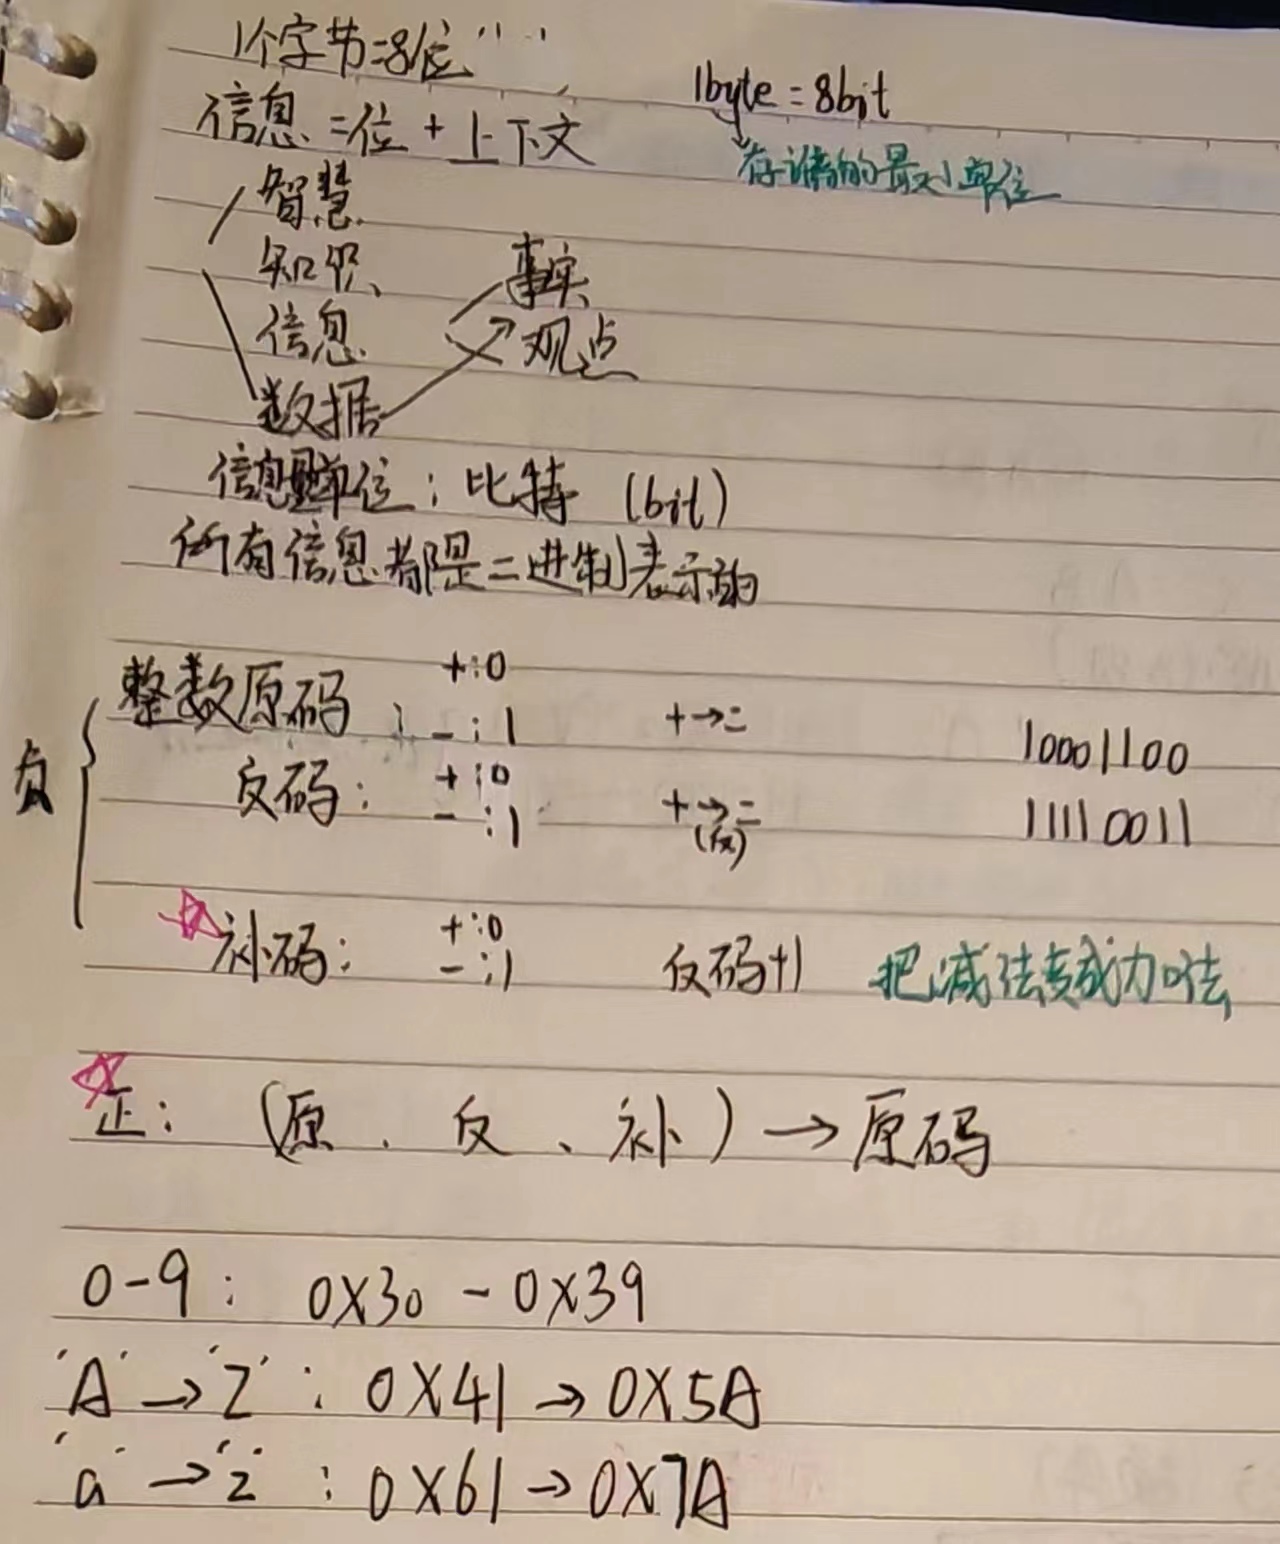 1个字节=8位
1byte = 8bit
信息 = 位 + 上下文
存储的最小单位
智慧
知识
事实
信息
观点
数据
信息单位：比特 (bit)
所有信息都是二进制表示的
负
整数原码： +:0
-:1 +→二 10001100
反码： +:0
-:1 +→二 11110011
(反)
补码： +:0
-:1 反码+1 把减法变成加法
正： (原、反、补) → 原码
0-9： 0X30 - 0X39
'A' → 'Z'： 0X41 → 0X5A
'a' → 'z'： 0X61 → 0X7A